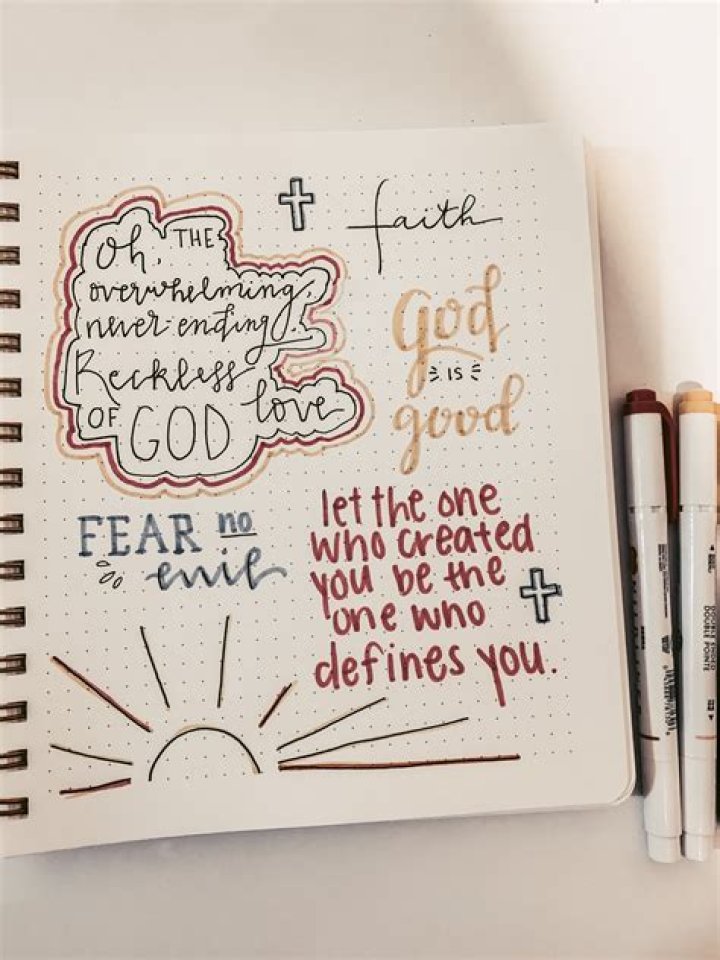 Oh, THE
overwhelming,
never-ending.
Reckless
OF GOD love
faith
God
IS
good
FEAR no
evil
let the one
who created
you be the
one who
defines you.